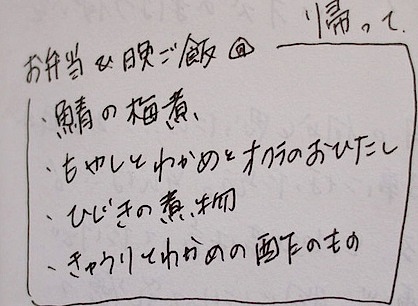 帰って
お弁当&晩ご飯
・鯖の梅煮
・もやしとわかめとオクラのおひたし
・ひじきの煮物
・きゅうりとわかめの酢のもの